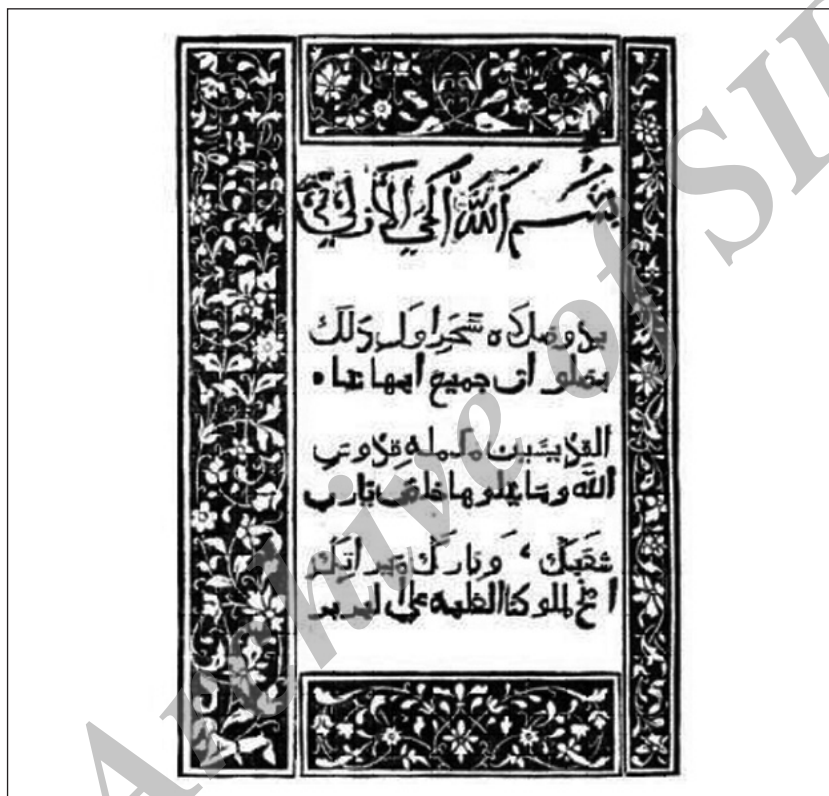 بسم الله الحي الازلي
صلاه سحر اول ذلك
بصلوات جميع ابهاتنا ه
القديسين قدوس
الله خلص يارب
شعبك وبارك ميراتك
امنح لملوكنا الغلبه علي البربر
Archive of SID